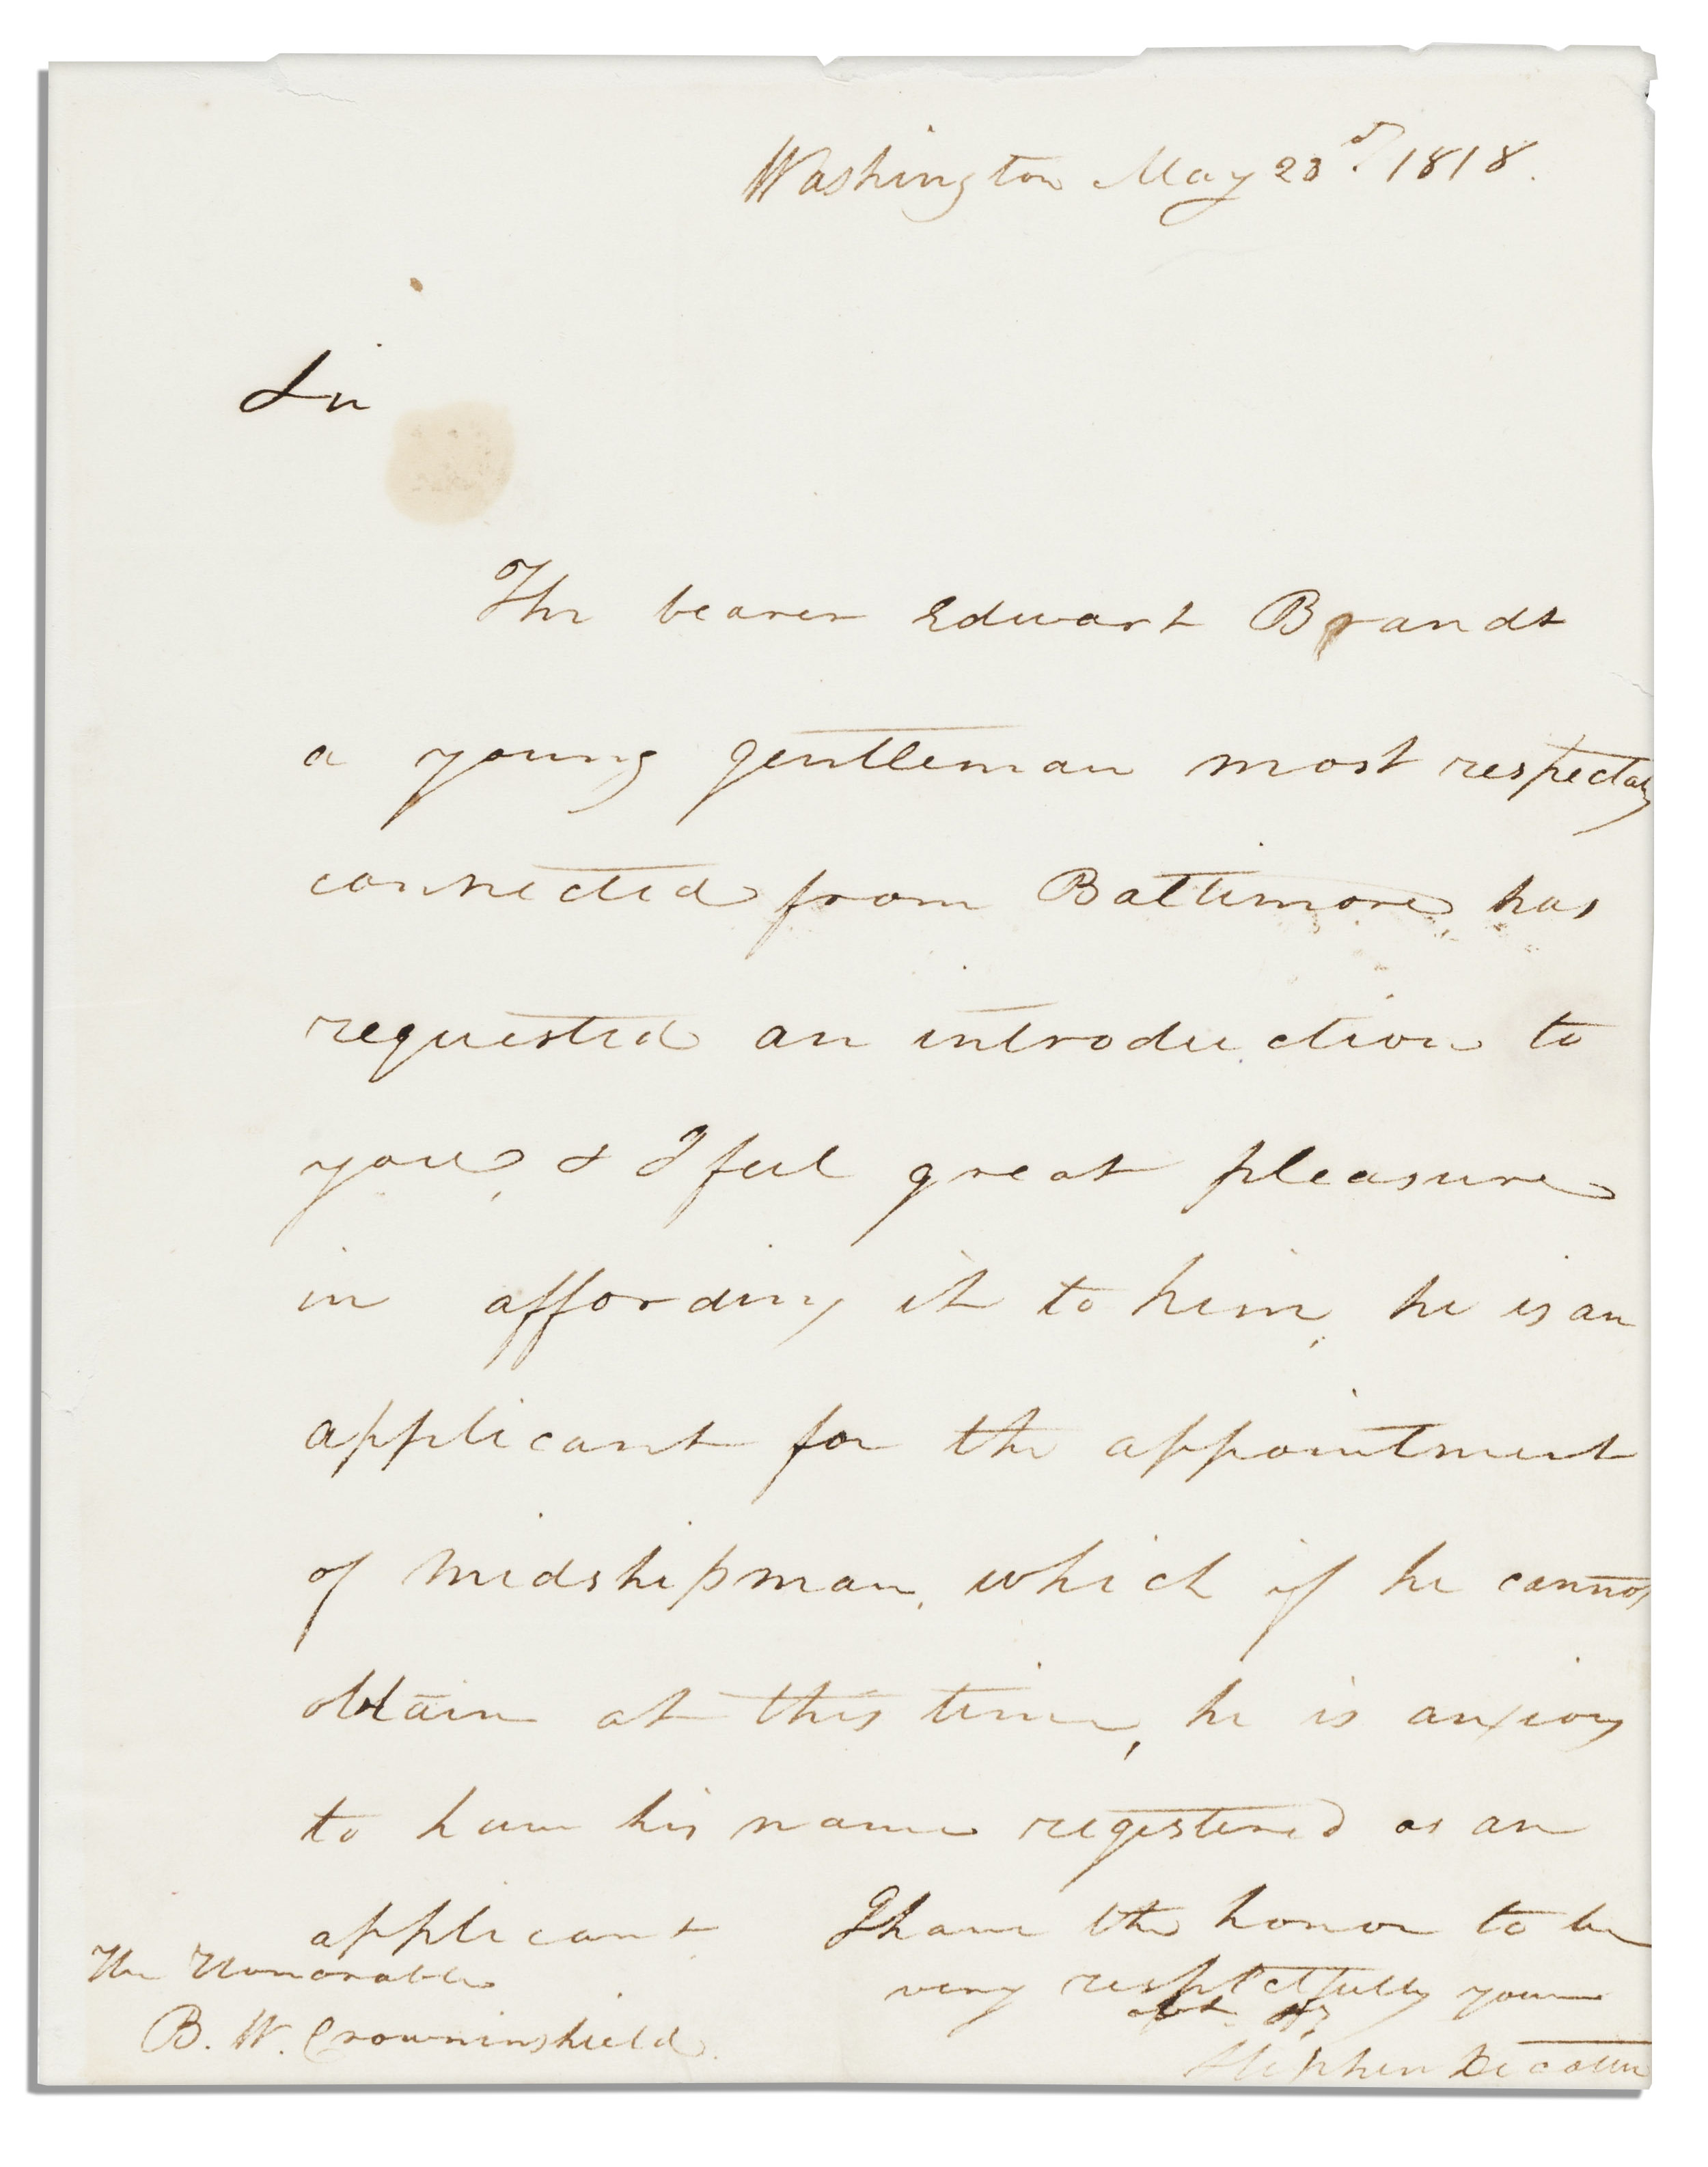 Washington May 23d. 1818.
Sir
The bearer Edwart Brandt
a young gentleman most respectably
connected from Baltimore, has
requested an introduction to
you, & I feel great pleasure
in affording it to him, he is an
applicant for the appointment
of Midshipman, which if he cannot
obtain at this time, he is anxious
to have his name registered as an
applicant. I have the honor to be
very respectfully your
obt St
Stephen Decatur
The Honorable
B. W. Crowninshield.